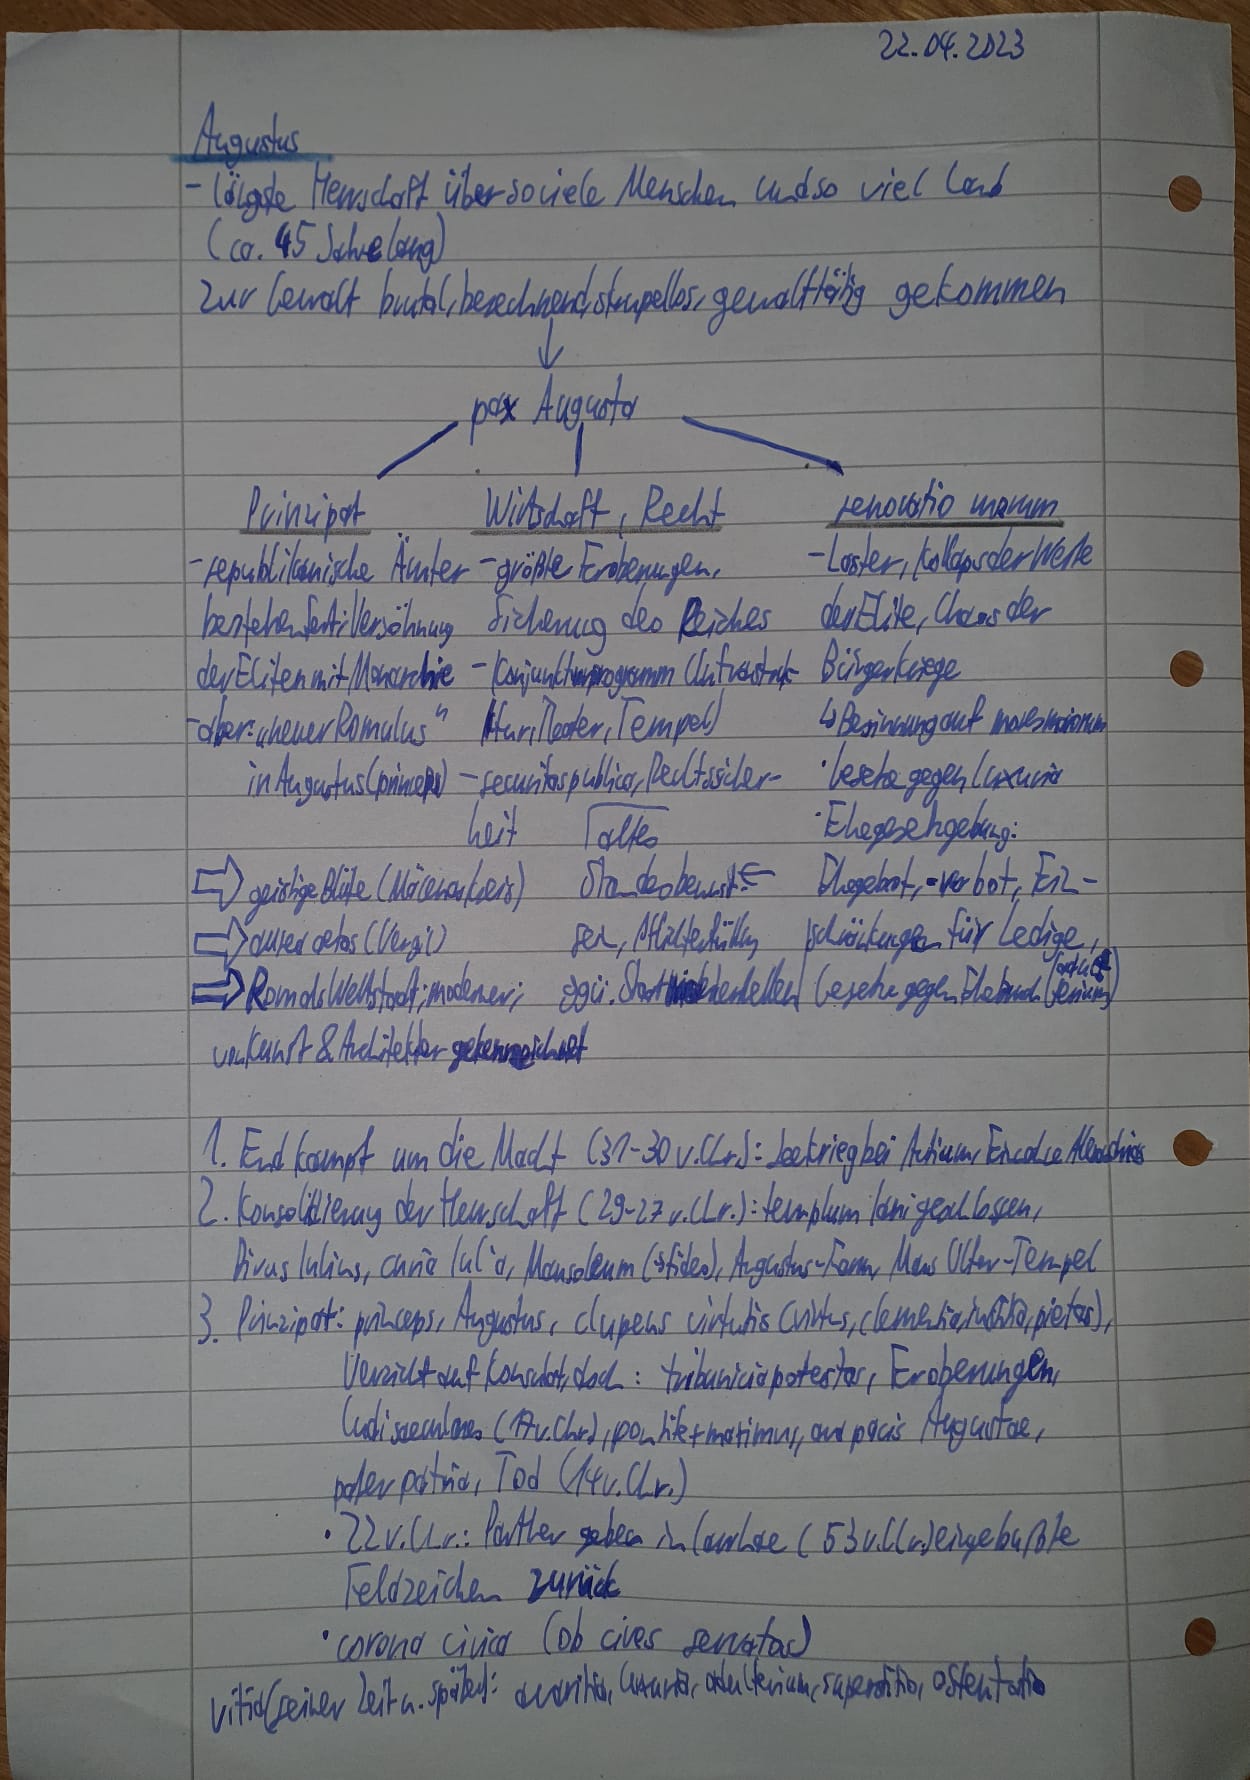 22.04.2023
Augustus
- längste Herrschaft über so viele Menschen und so viel Land
(ca. 45 Jahre lang)
zur Gewalt brutal, berechnend, skrupellos, gewalttätig gekommen
↓
pax Augusta
Prinzipat
- republikanische Ämter
bestehen fort: Versöhnung
der Eliten mit Monarchie
- aber: "neuer Romulus"
in Augustus (princeps)
Wirtschaft, Recht
- größte Eroberungen,
Sicherung des Reiches
- Konjunkturprogramm (Infrastruk-
tur, Theater, Tempel)
- securitas publica, Rechtssicher-
heit
renovatio morum
- Laster, Kollaps der Werte
der Elite, Chaos der
Bürgerkriege
↳ Besinnung auf mores maiorum
· Gesetze gegen luxuria
· Ehegesetzgebung:
Ehegebot, -verbot, Ein-
schränkungen für Ledige,
Gesetze gegen Ehebruch
altes
Standesbewusst- ←
sein, Pflichterfüllung
ggü. Staat herstellen
⇒ geistige Blüte (Mäcenaskreis)
⇒ aurea aetas (Vergil)
⇒ Rom als Weltstadt; moderner;
von Kunst & Architektur gekennzeichnet
1. Endkampf um die Macht (31-30 v. Chr.): Seekrieg bei Actium, Alexandrias
2. Konsolidierung der Herrschaft (29-27 v. Chr.): templum Iani geschlossen,
Divus Iulius, curia Iulia, Mausoleum, Augustus-Forum, Mars Ultor-Tempel
3. Prinzipat: princeps, Augustus, clupeus virtutis (virtus, clementia, iustitia, pietas),
Verzicht auf Konsulat, doch: tribunicia potestas, Eroberungen,
ludi saeculares (17 v. Chr.), pontifex maximus, ara pacis Augustae,
pater patria, Tod (14 v. Chr.)
· 22 v. Chr.: Parther geben in Carrhae (53 v. Chr.) eingebüßte
Feldzeichen zurück
· corona civica (ob cives servatos)
vitia (seiner Zeit u. später): avaritia, luxuria, adulterium, superstitio, ostentatio